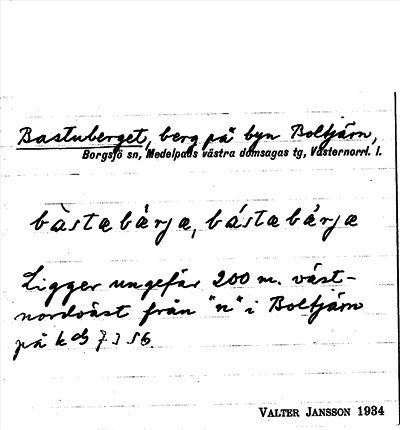 Bastuberget, berg på byn Boltjärn,
Borgsjö sn, Medelpads västra domsagas tg, Västernorrl. l.
bàstabärjæ, bástabärjæ
Ligger ungefär 200 m. väst-
nordväst från "n" i Boltjärn
på kbl 7356.
VALTER JANSSON 1934